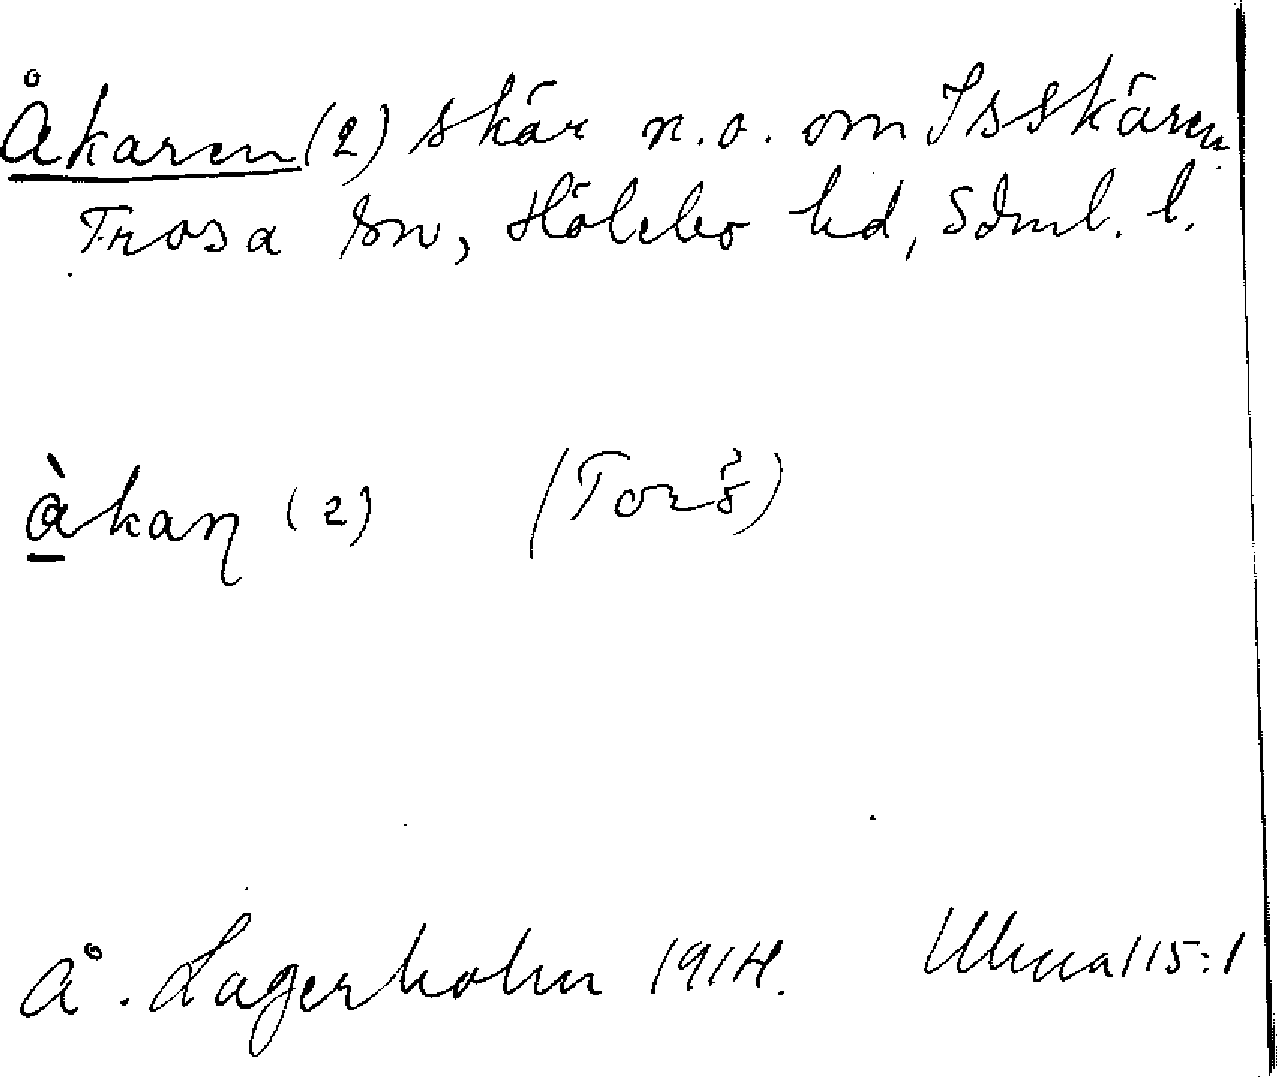 Åkaren (2) skär n.o. om Isskären
Trosa sn, Hölebo hd, Sdml. l.
å̀kaη (2) (Torö)
Å. Lagerholm 1914.